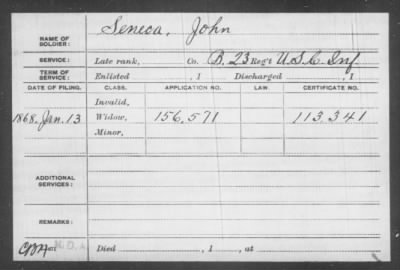 NAME OF SOLDIER: Seneca, John
SERVICE: Late rank, Co. B, 23 Reg't U.S.C. Inf
TERM OF SERVICE: Enlisted , 1 Discharged , 1
DATE OF FILING. CLASS. APPLICATION NO. LAW. CERTIFICATE NO.
Invalid,
1868, Jan. 13 Widow, 156,571 113,341
Minor,
ADDITIONAL SERVICES:
REMARKS:
Died , 1 , at